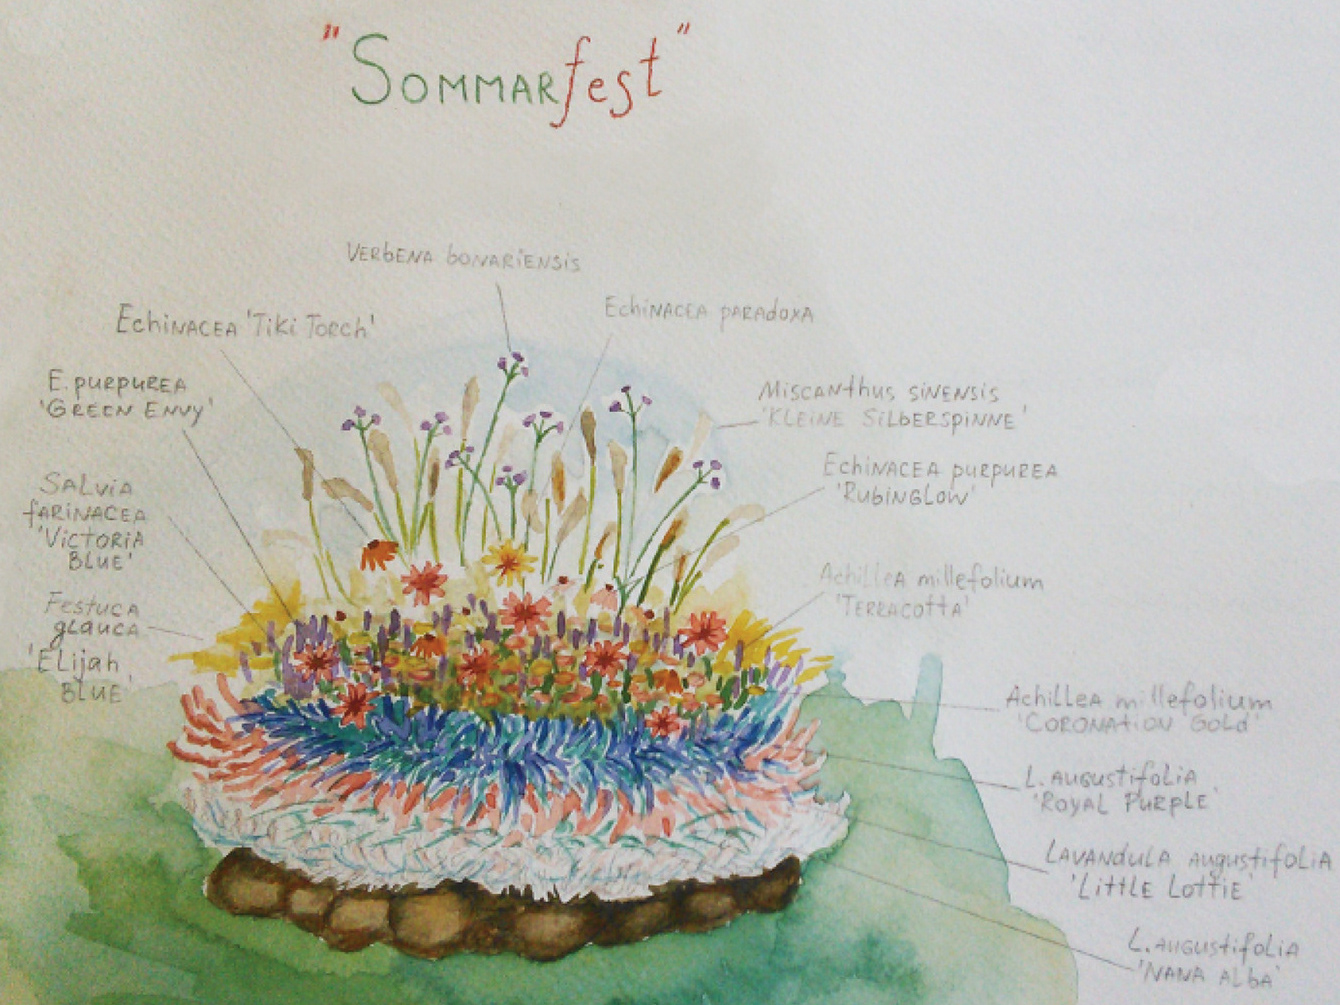 "SOMMARfest"
VERBENA bONARiENSiS
EchiNACEA 'Tiki Torch'
EchiNACEA PARAdOXA
E. PURPUREA
'GREEN ENVY'
MiSCANthus SiNENSiS
'KLEiNE SiLbERSPiNNE'
EchiNACEA PURPUREA
'RubiNGLOW'
SALViA
fARiNACEA
'VicTORiA
BLUE'
Achillea millefolium
'TERRACOttA'
Festuca
glauca
'Elijah
BLUE'
Achillea millefolium
'CORONAtiON GOLd'
L. AUGUSTifOLiA
'ROYAL PURPLE'
LAVANdULA AUgUStifOLiA
'LittLE LOttiE'
L. AUGUStifOLiA
'NANA ALbA'